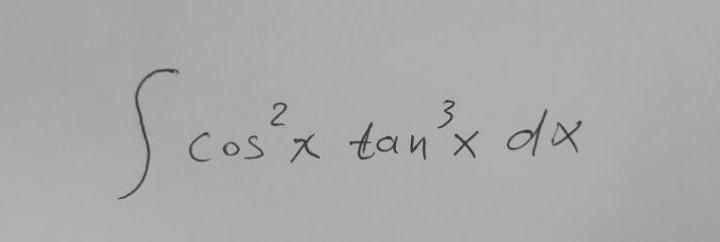 ∫ cos²x tan³x dx